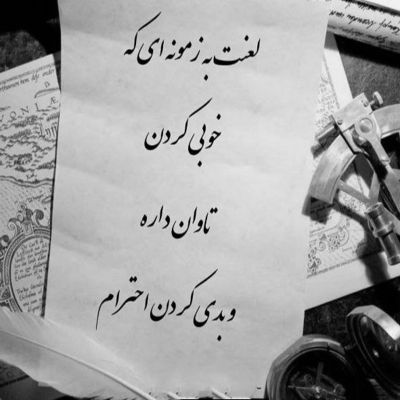 لعنت به زمونه ای که
خوبی کردن
تاوان داره
و بدی کردن احترام